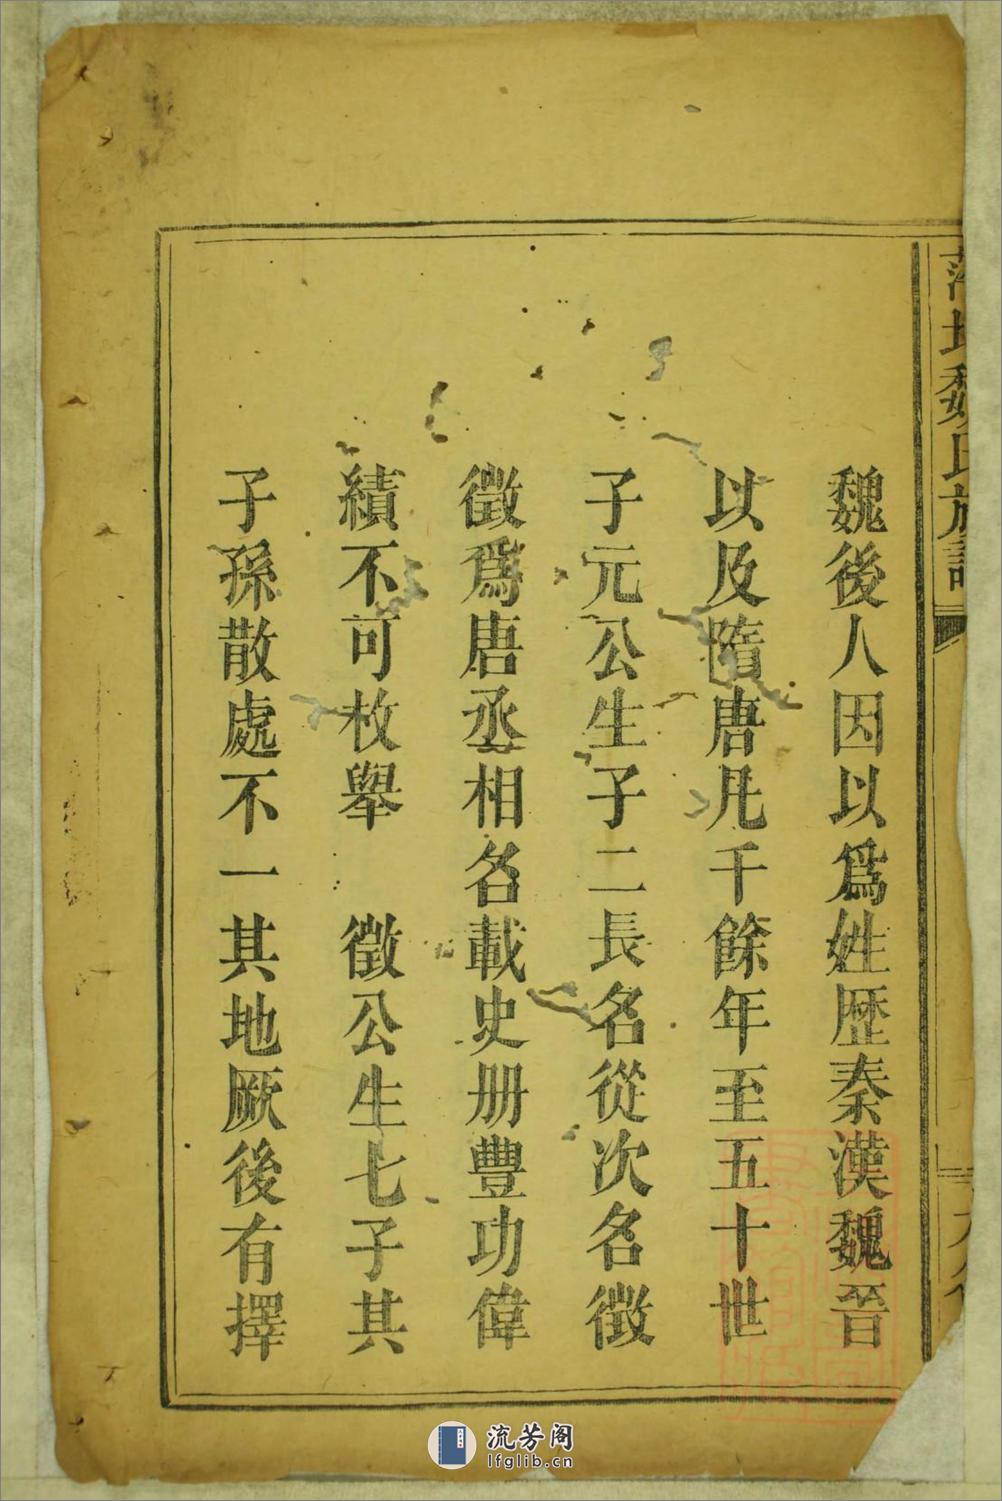 魏氏族譜
魏後人因以爲姓歷秦漢魏晉
以及隋唐凡千餘年至五十世
子元公生子二長名從次名徵
徵爲唐丞相名載史册豐功偉
績不可枚舉　徵公生七子其
子孫散處不一其地厥後有擇
流芳阁
lfglib.cn